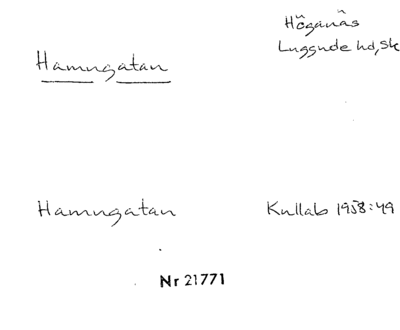 Höganäs
Luggude hd, Sk
Hamngatan
Hamngatan
Kullab 1958:49
Nr 21771